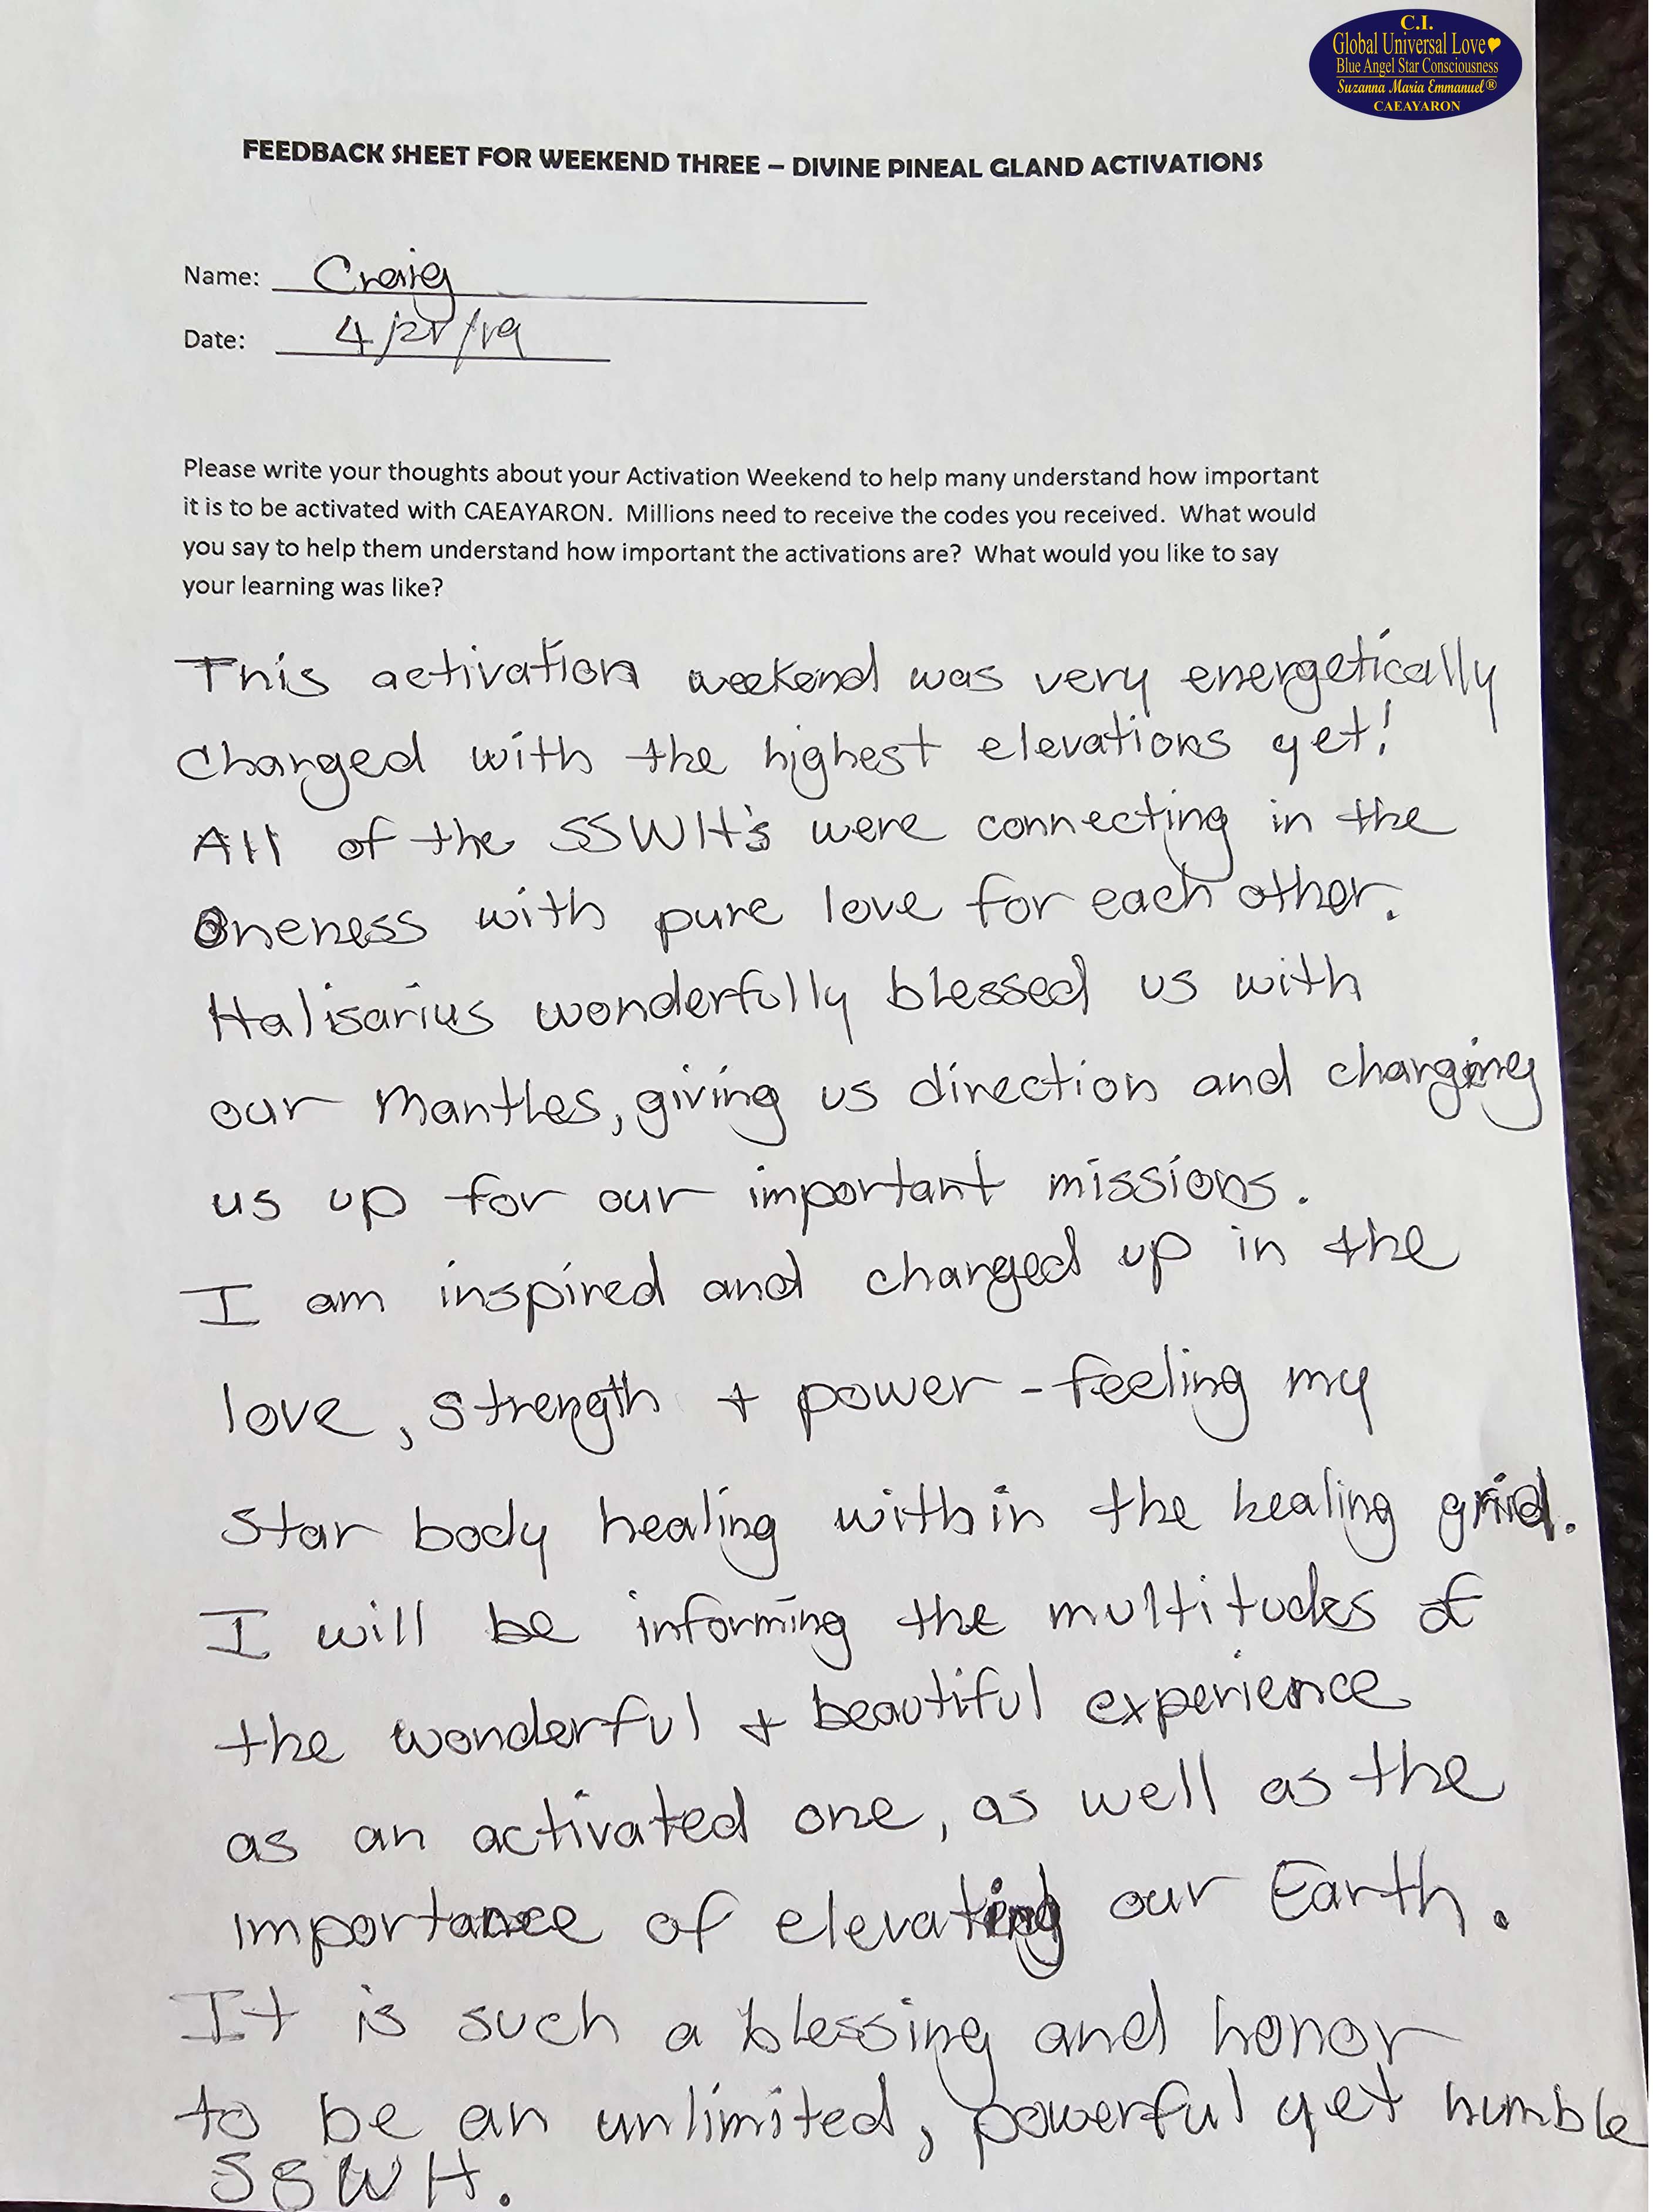 C.I.
Global Universal Love
Blue Angel Star Consciousness
Suzanna Maria Emmanuel®
CAEAYARON
FEEDBACK SHEET FOR WEEKEND THREE – DIVINE PINEAL GLAND ACTIVATIONS
Name: Craig
Date: 4/21/19
Please write your thoughts about your Activation Weekend to help many understand how important
it is to be activated with CAEAYARON. Millions need to receive the codes you received. What would
you say to help them understand how important the activations are? What would you like to say
your learning was like?
This activation weekend was very energetically
charged with the highest elevations yet!
All of the SSWH's were connecting in the
Oneness with pure love for each other.
Halisarius wonderfully blessed us with
our Mantles, giving us direction and charging
us up for our important missions.
I am inspired and charged up in the
love, strength + power - feeling my
star body healing within the healing grid.
I will be informing the multitudes of
the wonderful + beautiful experience
as an activated one, as well as the
importance of elevating our Earth.
It is such a blessing and honor
to be an unlimited, powerful yet humble
SSWH.